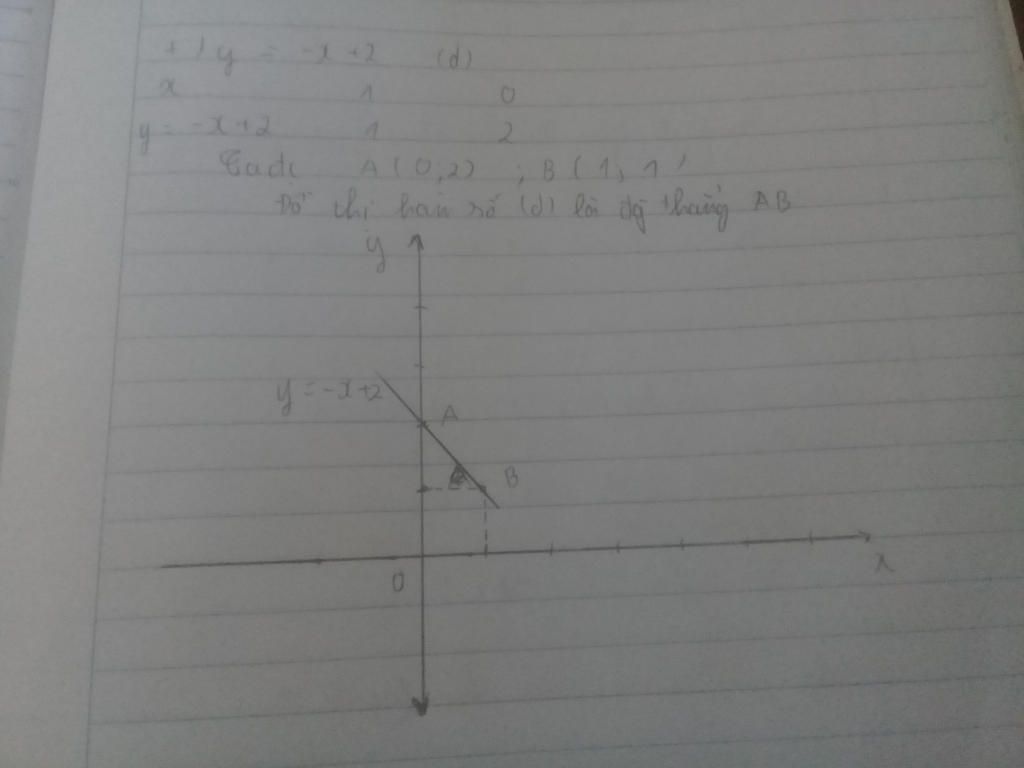 +) y = -x +2 (d)
x 1 0
y = -x+2 1 2
A(0;2) ; B(1; 1)
Đồ thị hàn số (d) là đg thẳng AB
y
y = -x+2
A
B
O
x